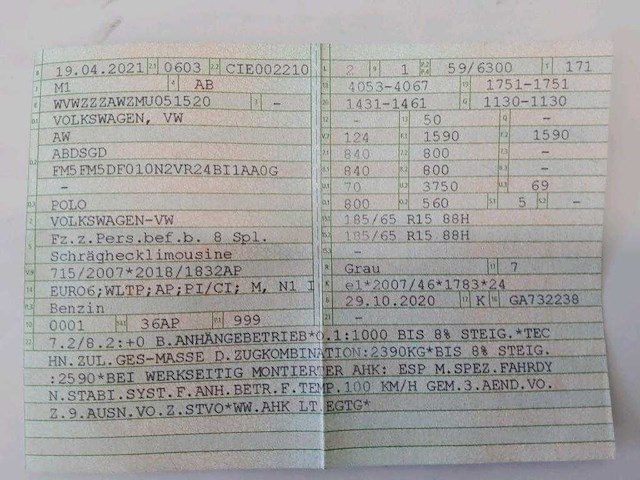 19.04.2021 0603 CIE002210
M1 AB
WVWZZZAWZMU051520 -
VOLKSWAGEN, VW
AW
ABDSGD
FM5FM5DF010N2VR24BI1AA0G
-
POLO
VOLKSWAGEN-VW
Fz.z.Pers.bef.b. 8 Spl.
Schräghecklimousine
715/2007*2018/1832AP
EURO6;WLTP;AP;PI/CI; M, N1 I
Benzin
0001 36AP 999
L 2 9 1 59/6300 T 171
4053-4067 1751-1751
1431-1461 1130-1130
- 50 -
124 1590 1590
840 800 -
840 800 -
70 3750 69
800 560 5 -
185/65 R15 88H
185/65 R15 88H
-
Grau 7
e1*2007/46*1783*24
29.10.2020 K GA732238
-
7.2/8.2:+0 B.ANHÄNGEBETRIEB*O.1:1000 BIS 8% STEIG.*TEC
HN.ZUL.GES-MASSE D.ZUGKOMBINATION:2390KG*BIS 8% STEIG.
:2590*BEI WERKSEITIG MONTIERTER AHK: ESP M.SPEZ.FAHRDY
N.STABI.SYST.F.ANH.BETR.F.TEMP.100 KM/H GEM.3.AEND.VO.
Z.9.AUSN.VO.Z.STVO*WW.AHK LT.EGTG*